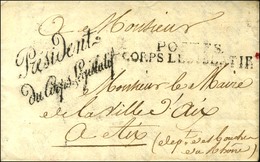 à Monsieur
Président
du Corps Législatif
CORPS LEGISLATIF
Monsieur le Maire
de la ville d'Aix
à Aix
(dept des Bouches
du Rhône)